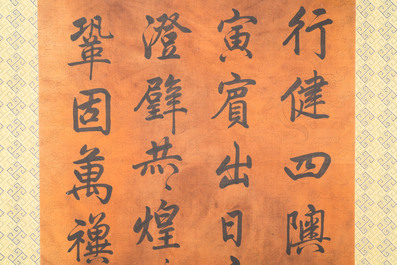 行健四隩
寅賓出日
澄璧恭煌
鞏固萬禩